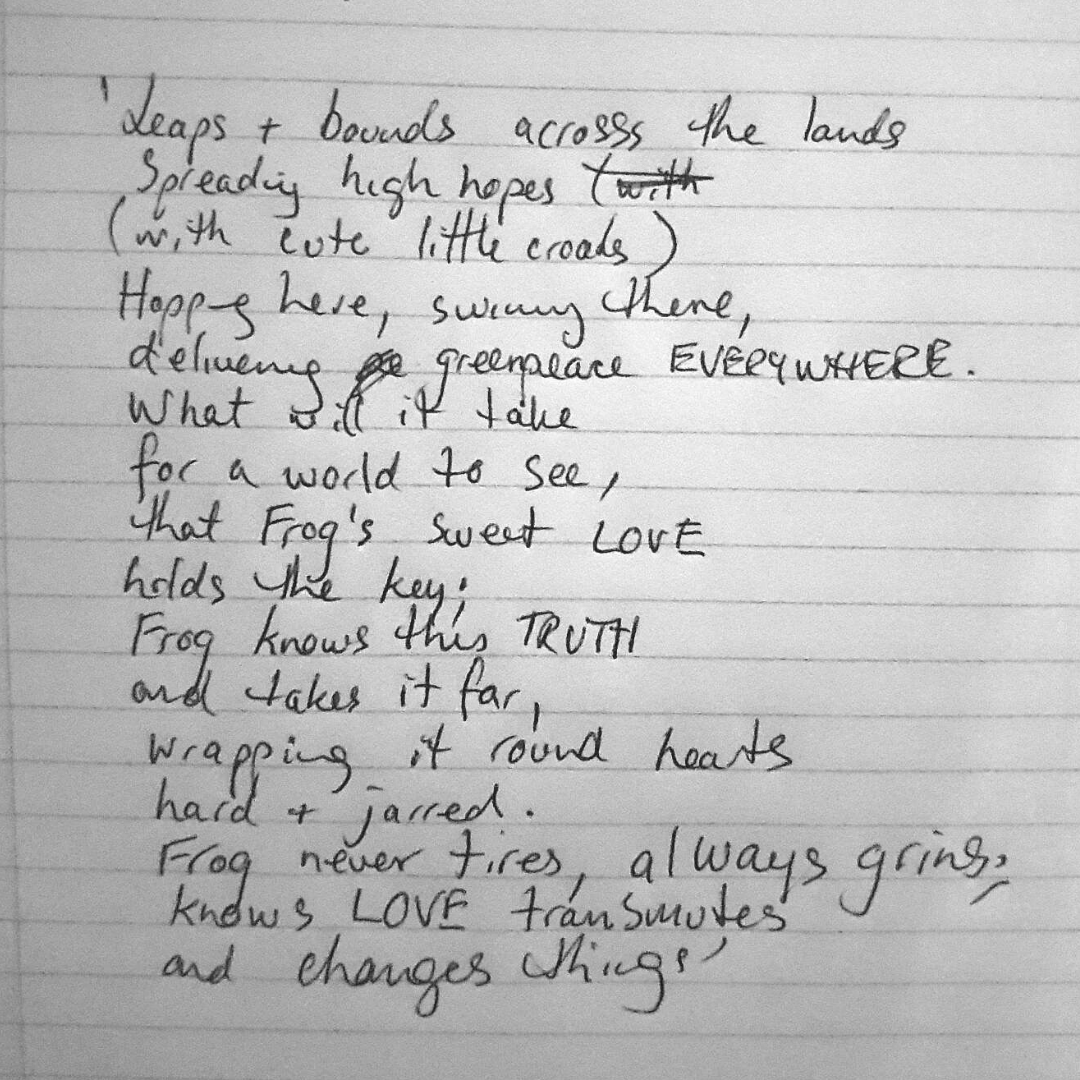 'Leaps + bounds acrosss the lands
Spreading high hopes (with
(with cute little croaks)
Hopping here, swimmy there,
delivering greenpeace EVERYWHERE.
What will it take
for a world to see,
that Frog's sweet LOVE
holds the key;
Frog knows this TRUTH
and takes it far,
wrapping it round hearts
hard + jarred.
Frog never tires, always grins;
knows LOVE transmutes
and changes things'